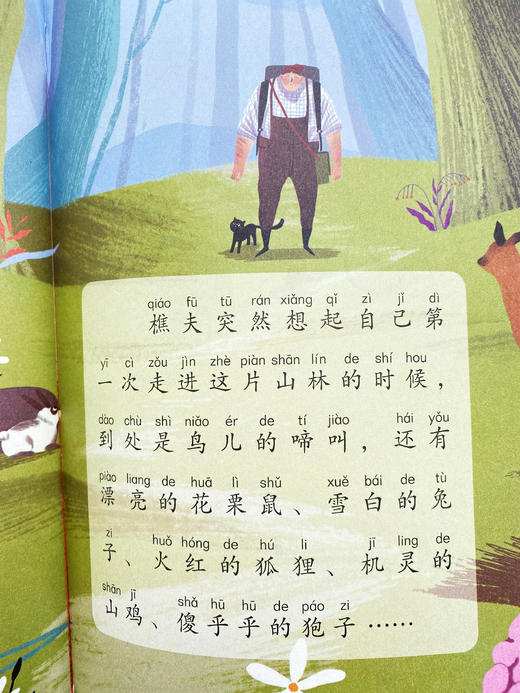 qiáo fū tū rán xiǎng qǐ zì jǐ dì
樵夫突然想起自己第
yī cì zǒu jìn zhè piàn shān lín de shí hou
一次走进这片山林的时候，
dào chù shì niǎo ér de tí jiào hái yǒu
到处是鸟儿的啼叫，还有
piào liang de huā lì shǔ xuě bái de tù
漂亮的花栗鼠、雪白的兔
zi huǒ hóng de hú li jī ling de
子、火红的狐狸、机灵的
shān jī shǎ hū hū de páo zi
山鸡、傻乎乎的狍子……